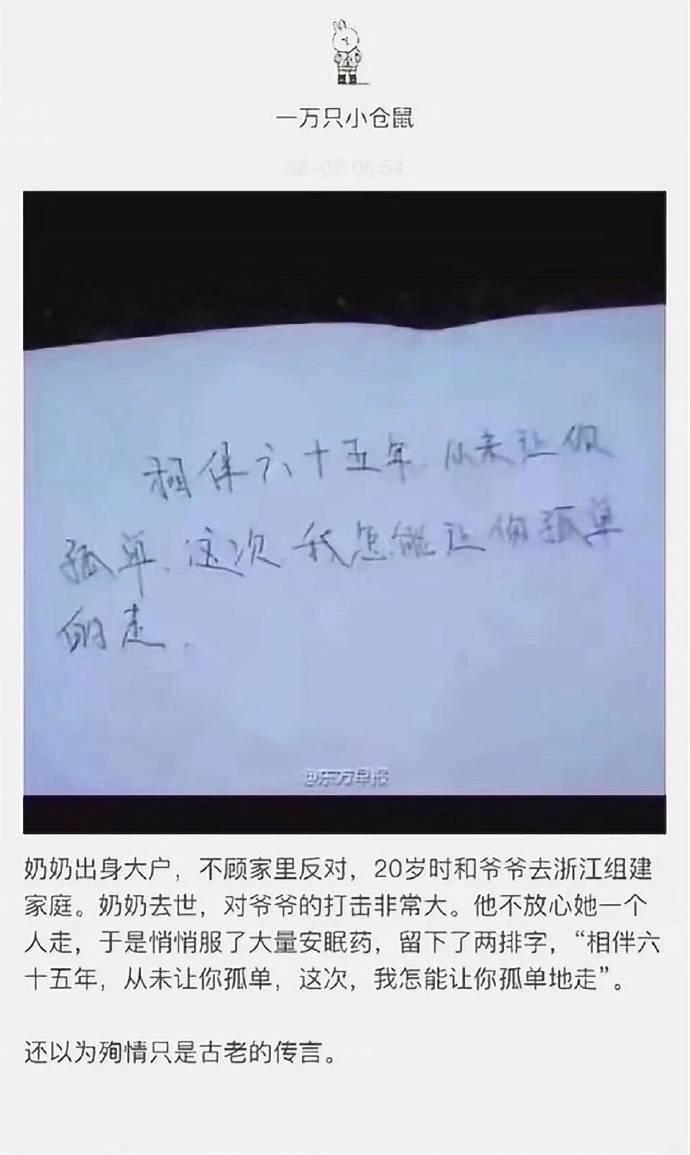 一万只小仓鼠
02-02 06:54
相伴六十五年.从未让你
孤单、这次.我怎能让你孤单
的走.
@东方早报
奶奶出身大户，不顾家里反对，20岁时和爷爷去浙江组建
家庭。奶奶去世，对爷爷的打击非常大。他不放心她一个
人走，于是悄悄服了大量安眠药，留下了两排字，“相伴六
十五年，从未让你孤单，这次，我怎能让你孤单地走”。
还以为殉情只是古老的传言。